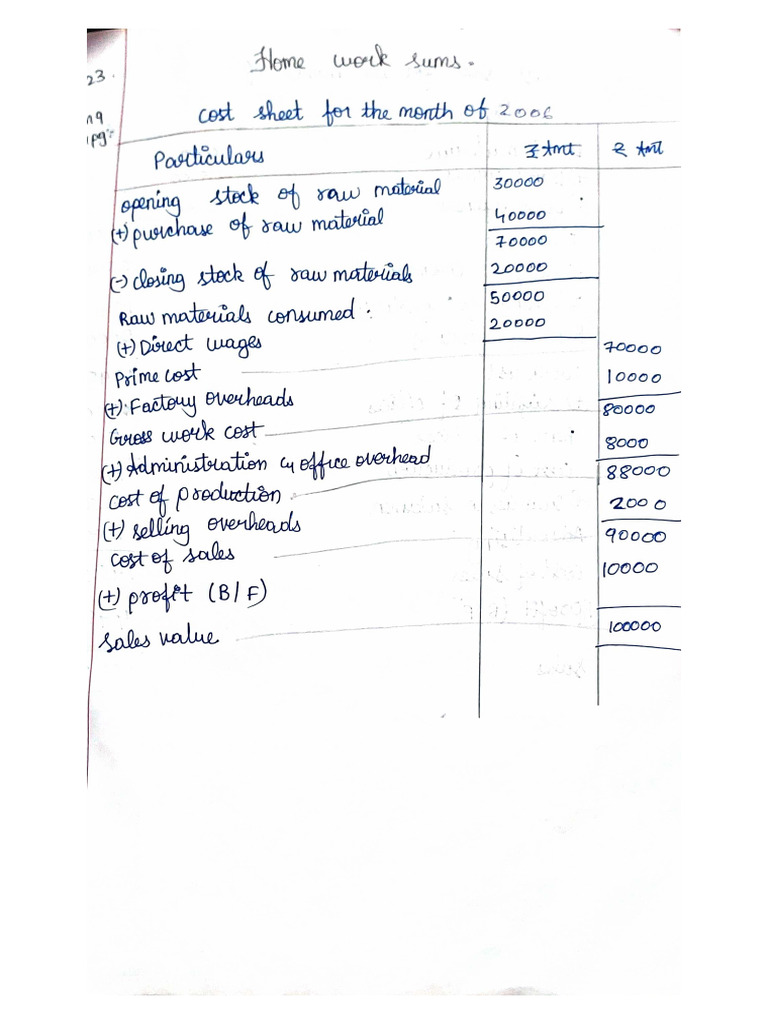 Home work sums.
23.
cost sheet for the month of 2006
Particulars ₹ Amt ₹ Amt
opening stock of raw material 30000
(+) purchase of raw material 40000
70000
(-) closing stock of raw materials 20000
Raw materials consumed. 50000
(+) Direct wages 20000
Prime cost 70000
(+) Factory overheads 10000
Gross work cost 80000
(+) Administration office overhead 8000
cost of production 88000
(+) selling overheads 2000
cost of sales 90000
(+) profit (B/F) 10000
sales value 100000